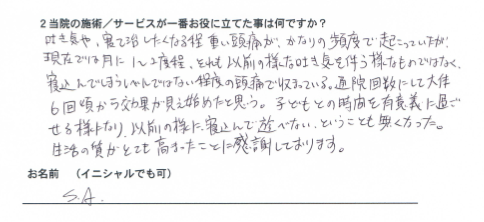 2 当院の施術/サービスが一番お役に立てた事は何ですか?
吐き気や、寝て治したくなる程重い頭痛が、かなりの頻度で起こっていたが、
現在では月に1、2度程、それも以前の様な吐き気を伴う様なものではなく、
寝込んでしまうじゃんではない程度の頭痛で収まっている。通院回数にして大体
6回頃から効果が見え始めたと思う。子どもとの時間を有意義に過ご
せる様になり、以前の様に、寝込んで遊べない、ということも無くなった。
生活の質がとても高まったことに感謝しております。
お名前 (イニシャルでも可)
S.A.